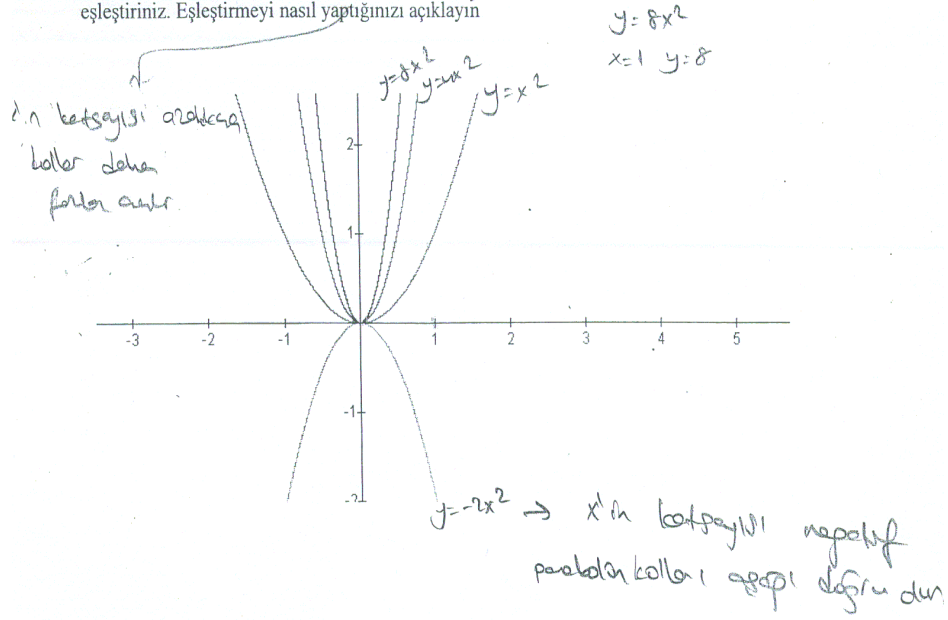 eşleştiriniz. Eşleştirmeyi nasıl yaptığınızı açıklayın
y=8x²
x=1 y=8
y=8x² y=4x² y=x²
katsayısı azaldıkça
kollar daha
fazla açılır
2
1
-3 -2 -1 1 2 3 4 5
-1
-2
y=-2x² → x'in katsayısı negatif
parabolün kolları aşağı doğru dur.